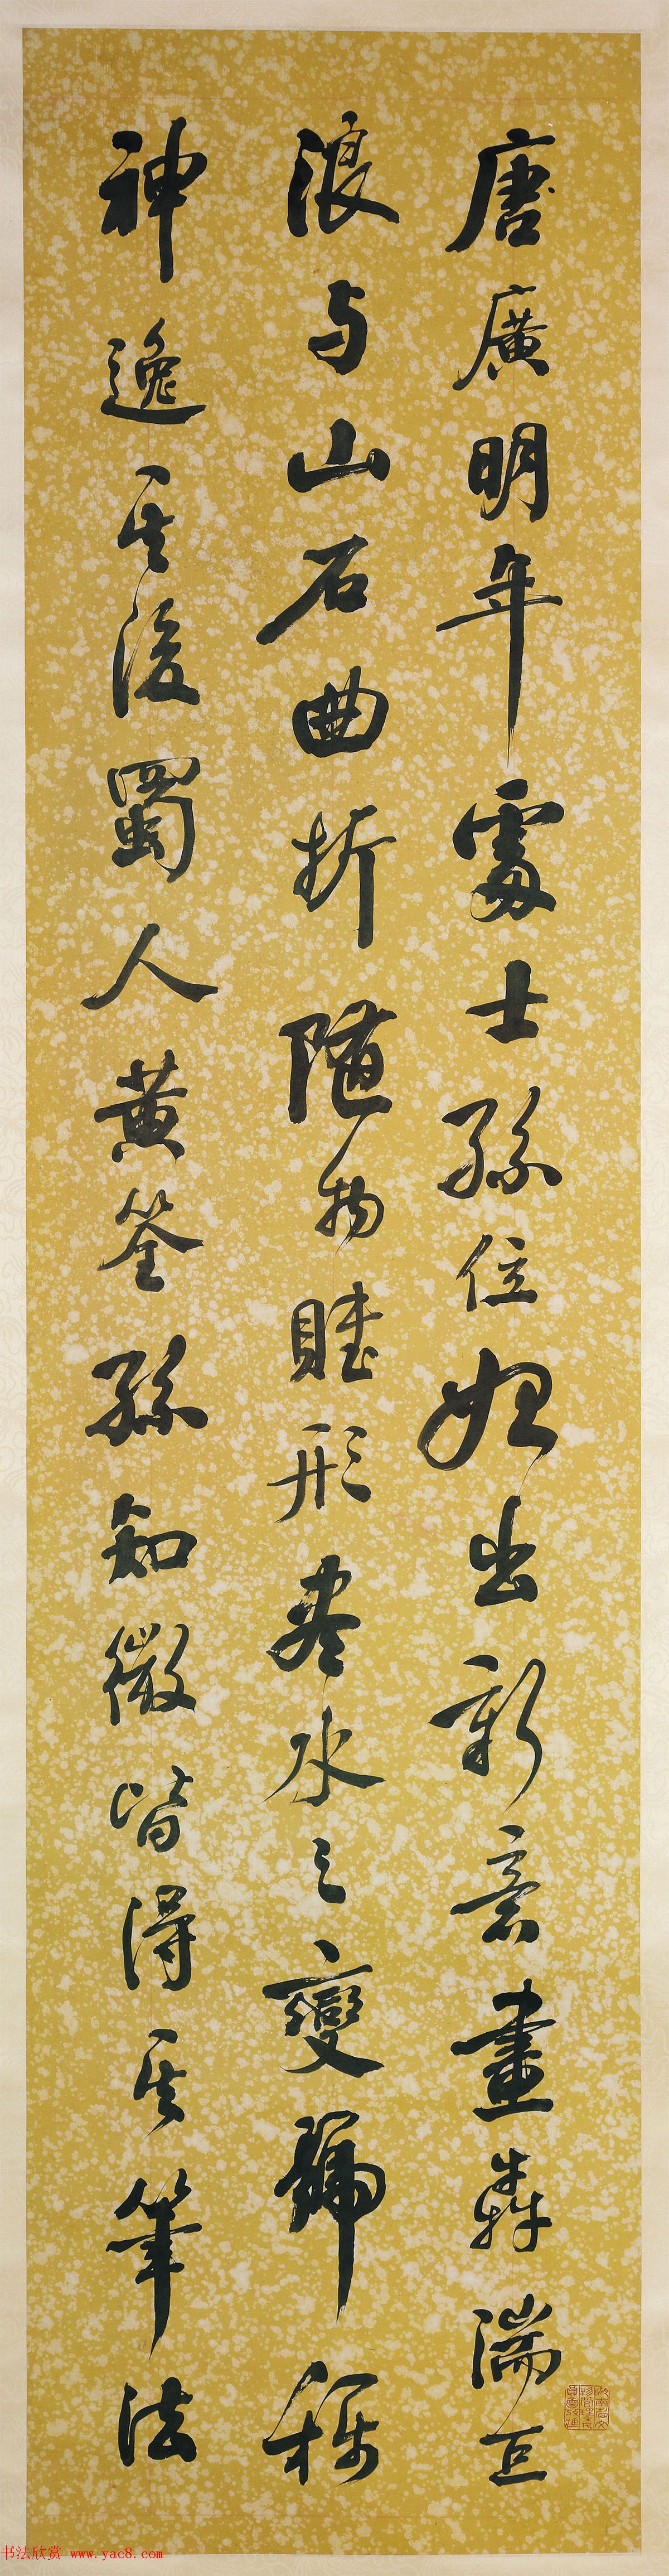 唐廣明年處士孫位始出新意畫犇湍巨
浪与山石曲折隨物賦形盡水之變號稱
神逸其後蜀人黃筌孫知微皆得其筆法
书法欣赏 www.yac8.com